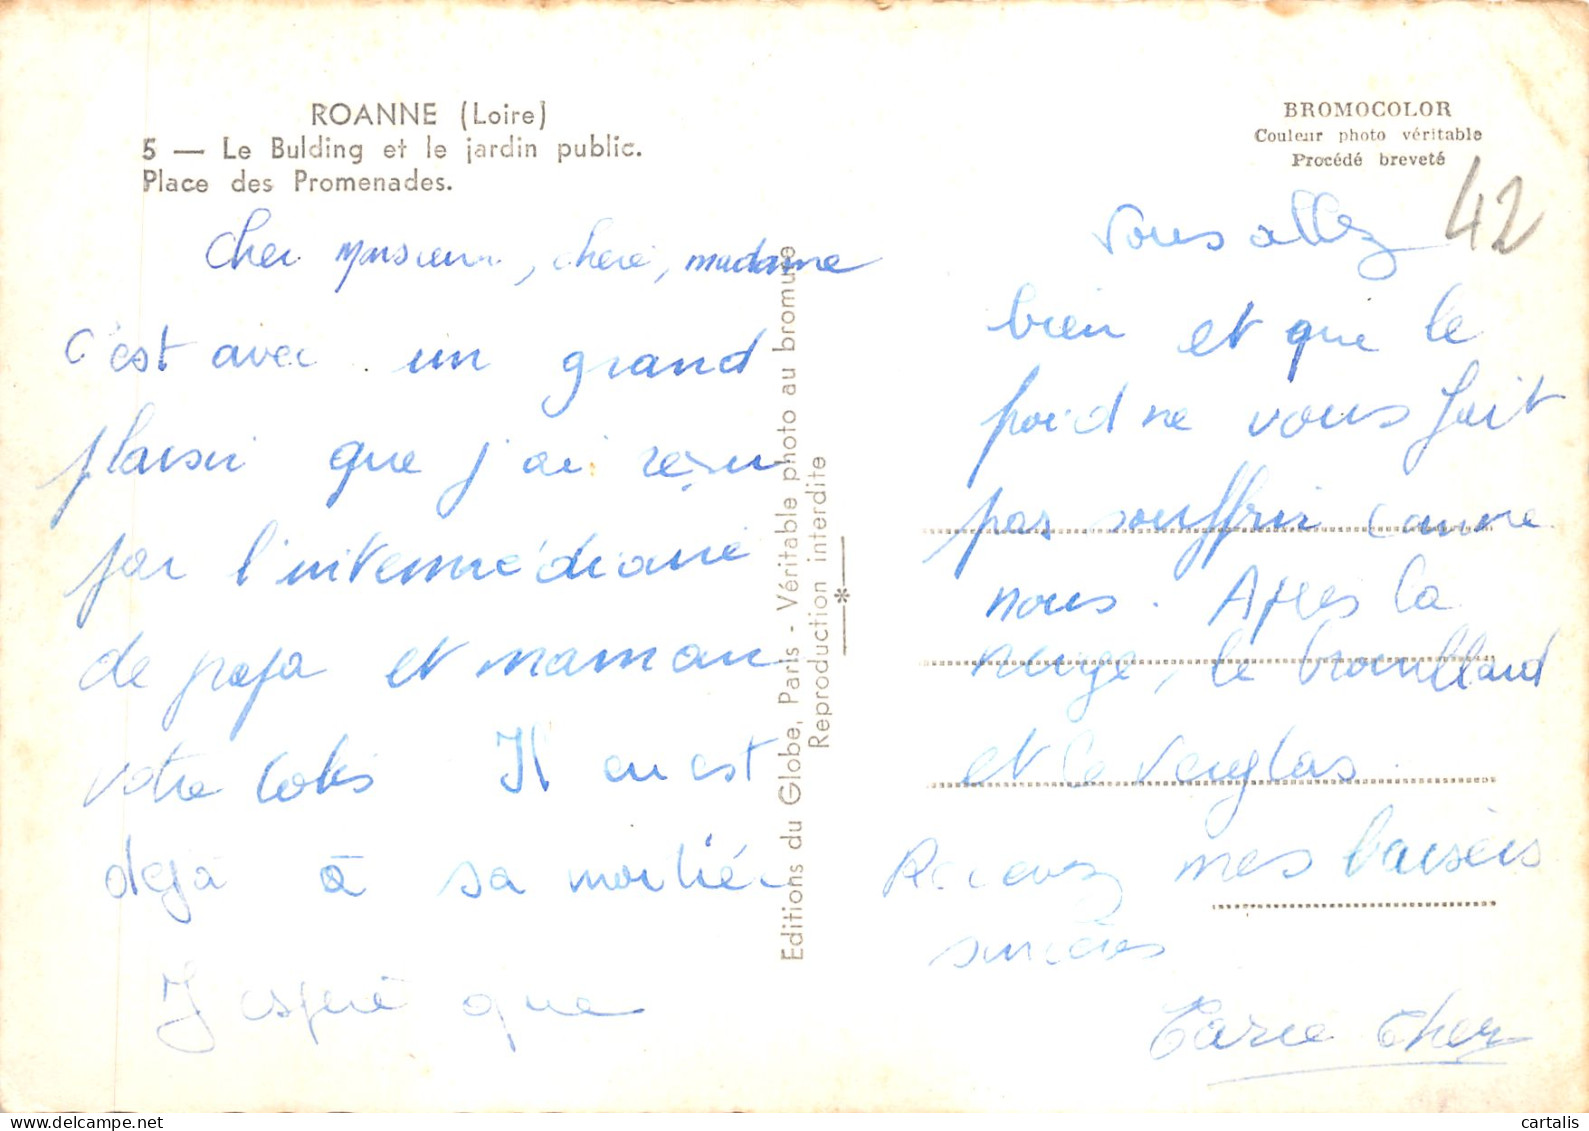 ROANNE (Loire)
5 — Le Bulding et le jardin public.
Place des Promenades.
BROMOCOLOR
Couleur photo véritable
Procédé breveté
42
Cher Monsieur, chere, madame
c'est avec un grand
plaisir que j'ai reçu
par l'intermédiaire
de papa et maman
votre colis Il en est
deja à sa moitié
J'espere que
Editions du Globe, Paris - Véritable photo au bromure
Reproduction interdite
vous allez
bien et que le
froid ne vous fait
pas souffrir comme
nous. Apres la
neige, le brouillard
et le verglas.
Recevez mes baisers
sinceres
cartalis